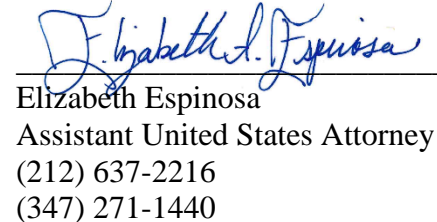 Elizabeth A. Espinosa
Elizabeth Espinosa
Assistant United States Attorney
(212) 637-2216
(347) 271-1440